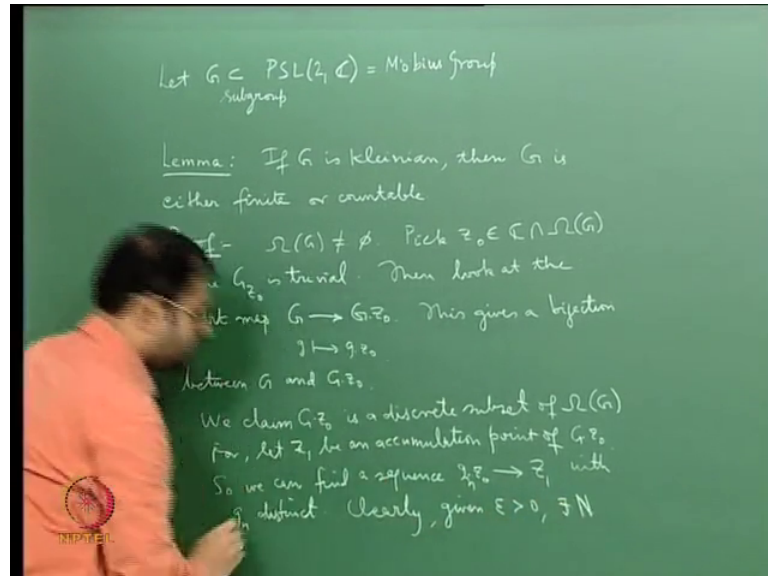 Let G ⊂ PSL(2, ℂ) = Möbius Group
subgroup
Lemma: If G is Kleinian, then G is
either finite or countable
Ω(G) ≠ φ. Pick z₀ ∈ ℂ ∩ Ω(G)
G_{z₀} is trivial. Then look at the
map G → G.z₀. This gives a bijection
g ↦ g.z₀
between G and G.z₀.
We claim G.z₀ is a discrete subset of Ω(G)
For, let z₁ be an accumulation point of G.z₀.
So we can find a sequence gₙz₀ → z₁ with
gₙ distinct. Clearly, given ε > 0, ∃ N
NPTEL